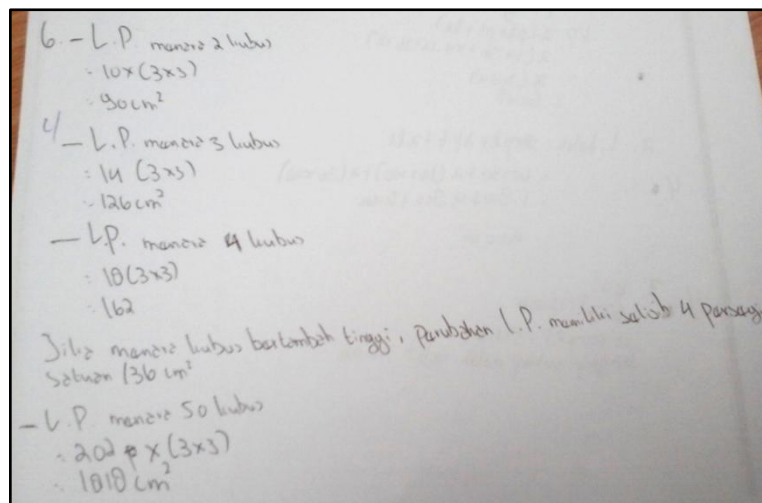 6. - L.P. menara 2 kubus
: 10 x (3x3)
: 90 cm²
4
- L.P. menara 3 kubus
: 14 (3x3)
: 126 cm²
- L.P. menara 4 kubus
: 18 (3x3)
: 162
Jika menara kubus bertambah tinggi, perubahan L.P. memiliki selisih 4 persegi
satuan /36 cm²
- L.P menara 50 kubus
: 202 x (3x3)
: 1818 cm²